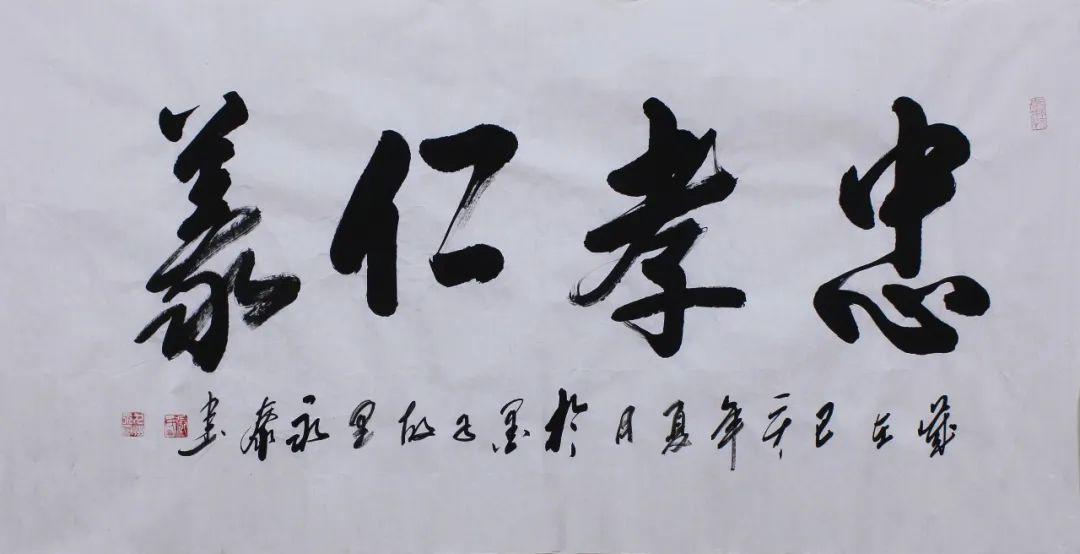 忠孝仁義
歲在己亥年夏月於墨子故里永泰書